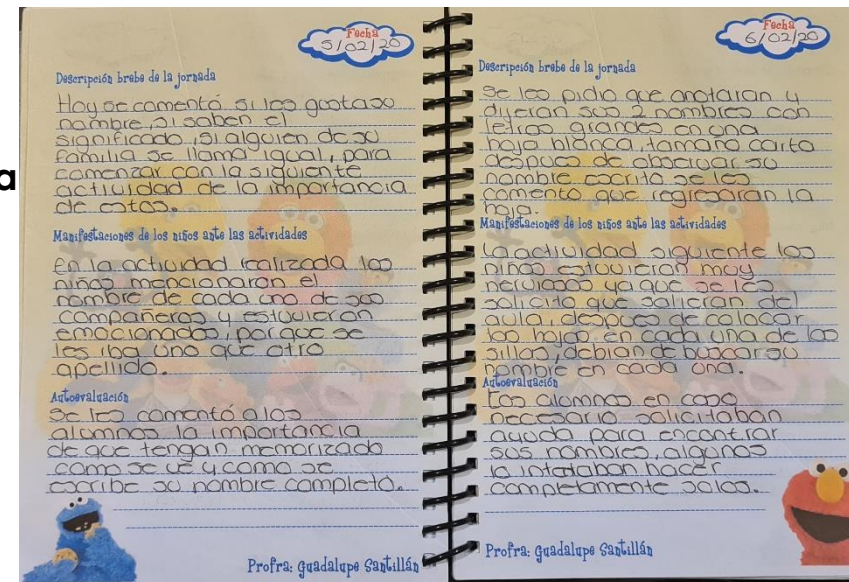 a
Fecha
5/02/20
Descripción brebe de la jornada
Hoy se comentó si les gusta su
nombre, si saben el
significado, si alguien de su
familia se llama igual, para
comenzar con la siguiente
actividad de la importancia
de estos.
Manifestaciones de los niños ante las actividades
En la actividad realizada los
niños mencionaron el
nombre de cada uno de sus
compañeros y estuvieron
emocionados, porque se
les iba uno que otro
apellido.
Autoevaluación
Se les comentó a los
alumnos la importancia
de que tengan memorizado
como se ve y como se
escribe su nombre completo.
Profra: Guadalupe Santillán
Fecha
6/02/20
Descripción brebe de la jornada
Se les pidio que anotaran y
dijeran sus 2 nombres con
letras grandes en una
hoja blanca, tamaño carta
despues de observar su
nombre escrito se les
comento que regresaran la
hoja.
Manifestaciones de los niños ante las actividades
La actividad siguiente los
niños estuvieron muy
nerviosos ya que se les
solicito que salieran del
aula, despues de colocar
las hojas en cada una de las
sillas, debian de buscar su
nombre en cada una.
Autoevaluación
Los alumnos en caso
necesario solicitaban
ayuda para encontrar
sus nombres, algunos
lo intentaban hacer
completamente solos.
Profra: Guadalupe Santillán